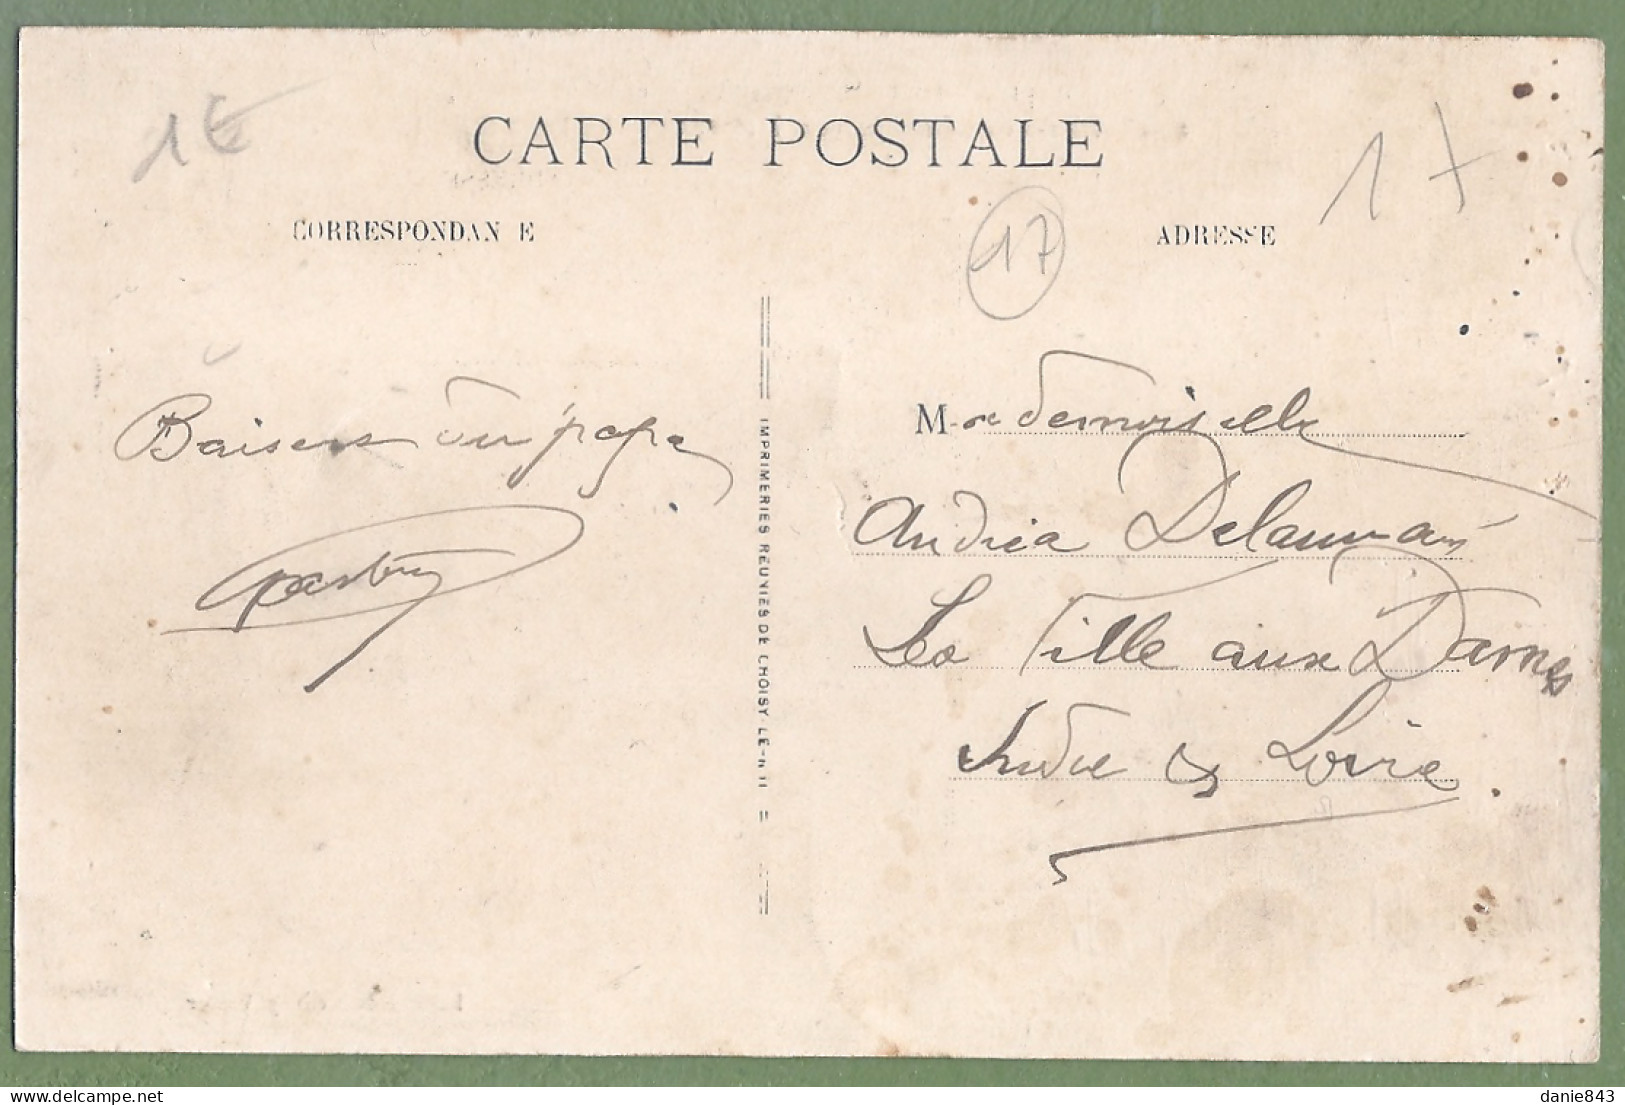 1€
CARTE POSTALE
1 7
17
CORRESPONDAN E
ADRESSE
Baisers du papa
IMPRIMERIES REUNIES DE CHOISY-LE-R
Mademoiselle
Andréa Delaunay
La Ville aux Dames
Indre & Loire
danie843